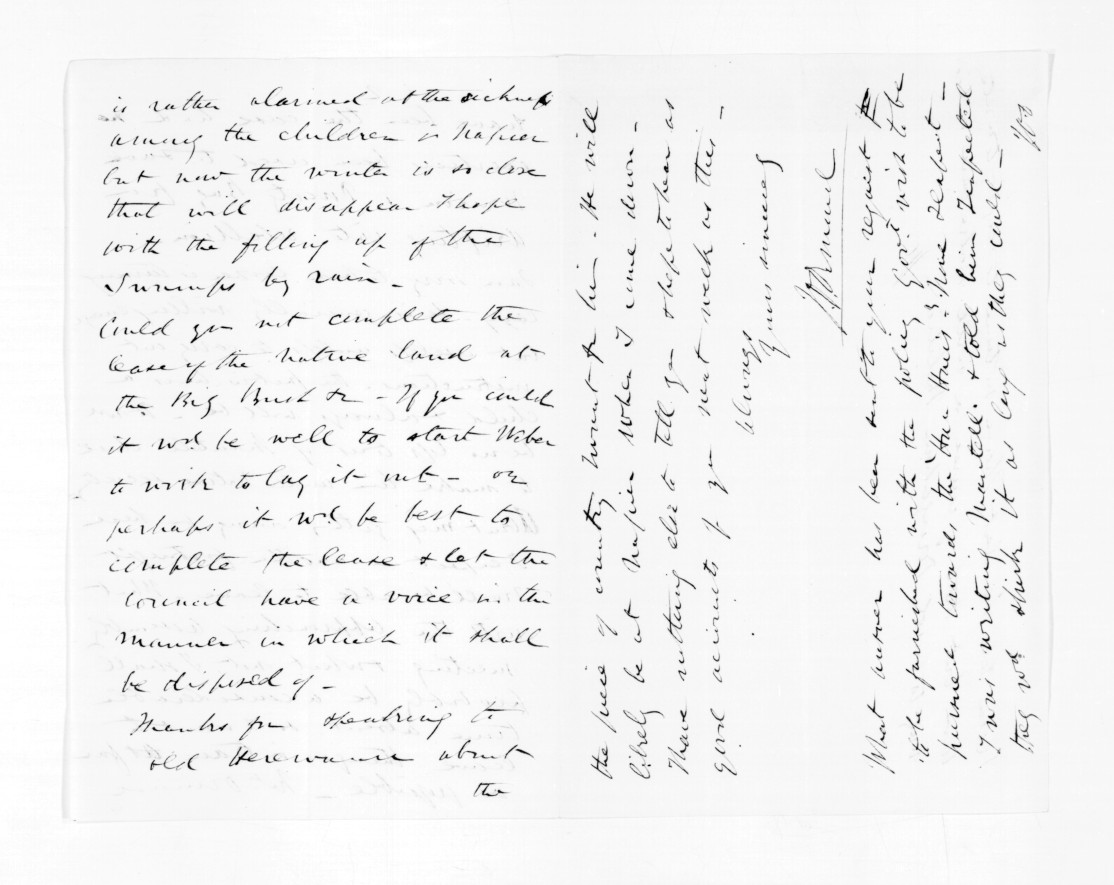 is rather alarmed at the sickness
among the children & Napier
but now the winter is so close
that will disappear I hope
with the filling up of the
Swamps by rain -
Could you not complete the
lease of the Native land at
the Big Bush &c - If you could
it wd. be well to start Weber
to work to lay it out - or
perhaps it wd. be best to
complete the lease & let the
Council have a voice in the
manner in which it shall
be disposed of -
Thanks for speaking to
old about
the
the piece of country for him. He will
likely be at Napier when I come down -
I have nothing else to tell you & hope to hear as
good accounts of you next week as this -
always
Yours sincerely
JD Ormond
What answer has been sent to your request
to be furnished with the policy Govt. wish to be
pursued towards the Hau Haus? None I expect -
I was writing Mantell & told him I expected
they wd. shirk it as long as they could -